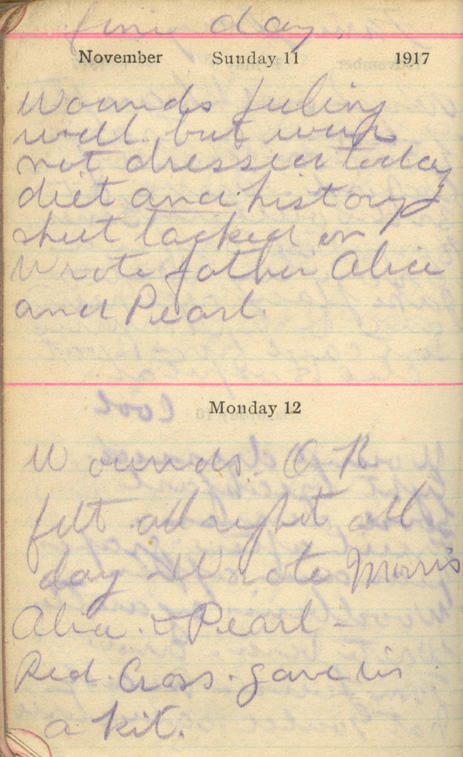 fine day.
November Sunday 11 1917
Wounds feeling
well but were
not dressed today
diet and history
sheet tacked on
Wrote father Alice
and Pearl.
Monday 12
cool.
Wounds. O K
felt allright all
day Wrote Morris
Alice. & Pearl -
Red. Cross. gave us
a kit.